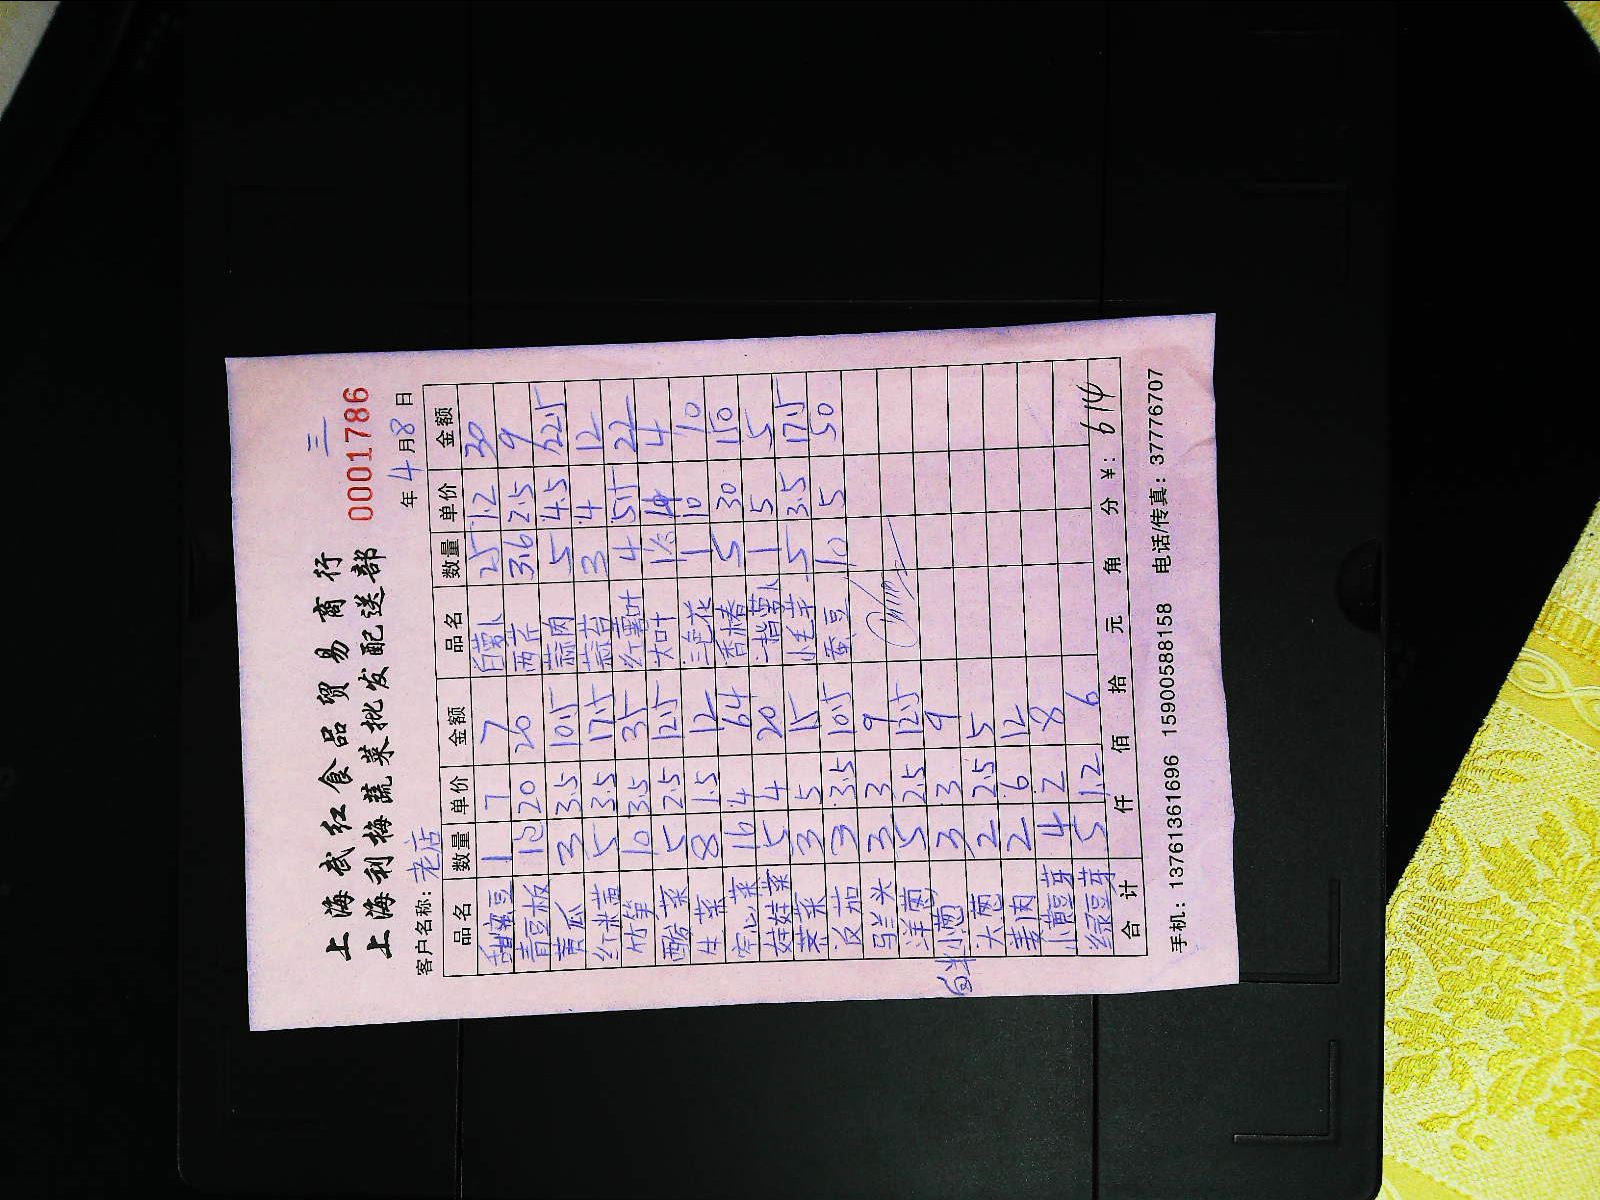 三
上海武红食品贸易商行
上海利梅蔬菜批发配送部
0001786
客户名称：老店 年4月8日
品名 数量 单价 金额 品名 数量 单价 金额
甜蜜豆 1 7 7 白萝卜 25 1.2 30
青豆板 20 20 西芹 3.6 2.5 9
黄瓜 3 3.5 10.5 蒜肉 5 4.5 22.5
红米苋 5 3.5 17.5 蒜苔 3 4 12
竹笋 10 3.5 35 红薯叶 4 5.5 22
酸菜 5 2.5 12.5 大叶 4
生菜 8 1.5 12 三色花 1 10 10
空心菜 16 4 64 香椿 5 30 150
娃娃菜 5 4 20 指萝卜 1 5 5
菜菜 3 5 15 小毛芋 5 3.5 17.5
反茄 3 3.5 10.5 蚕豆 10 5 50
马兰头 3 3 9
洋葱 5 2.5 12.5
小葱 3 3 9
大葱 2 2.5 5
麦肉 2 6 12
小黄豆芽 4 2 8
绿豆芽 5 1.2 6
合计 仟 佰 拾 元 角 分 ¥：614
手机：13761361696 15900588158 电话/传真：37776707